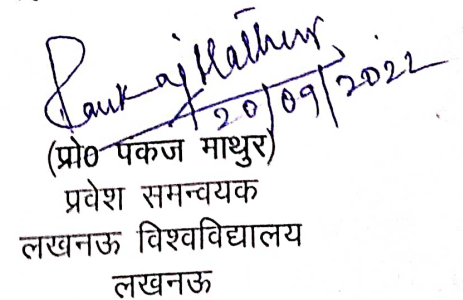 Pankaj Mathur
20/09/2022
(प्रो0 पंकज माथुर)
प्रवेश समन्वयक
लखनऊ विश्वविद्यालय
लखनऊ